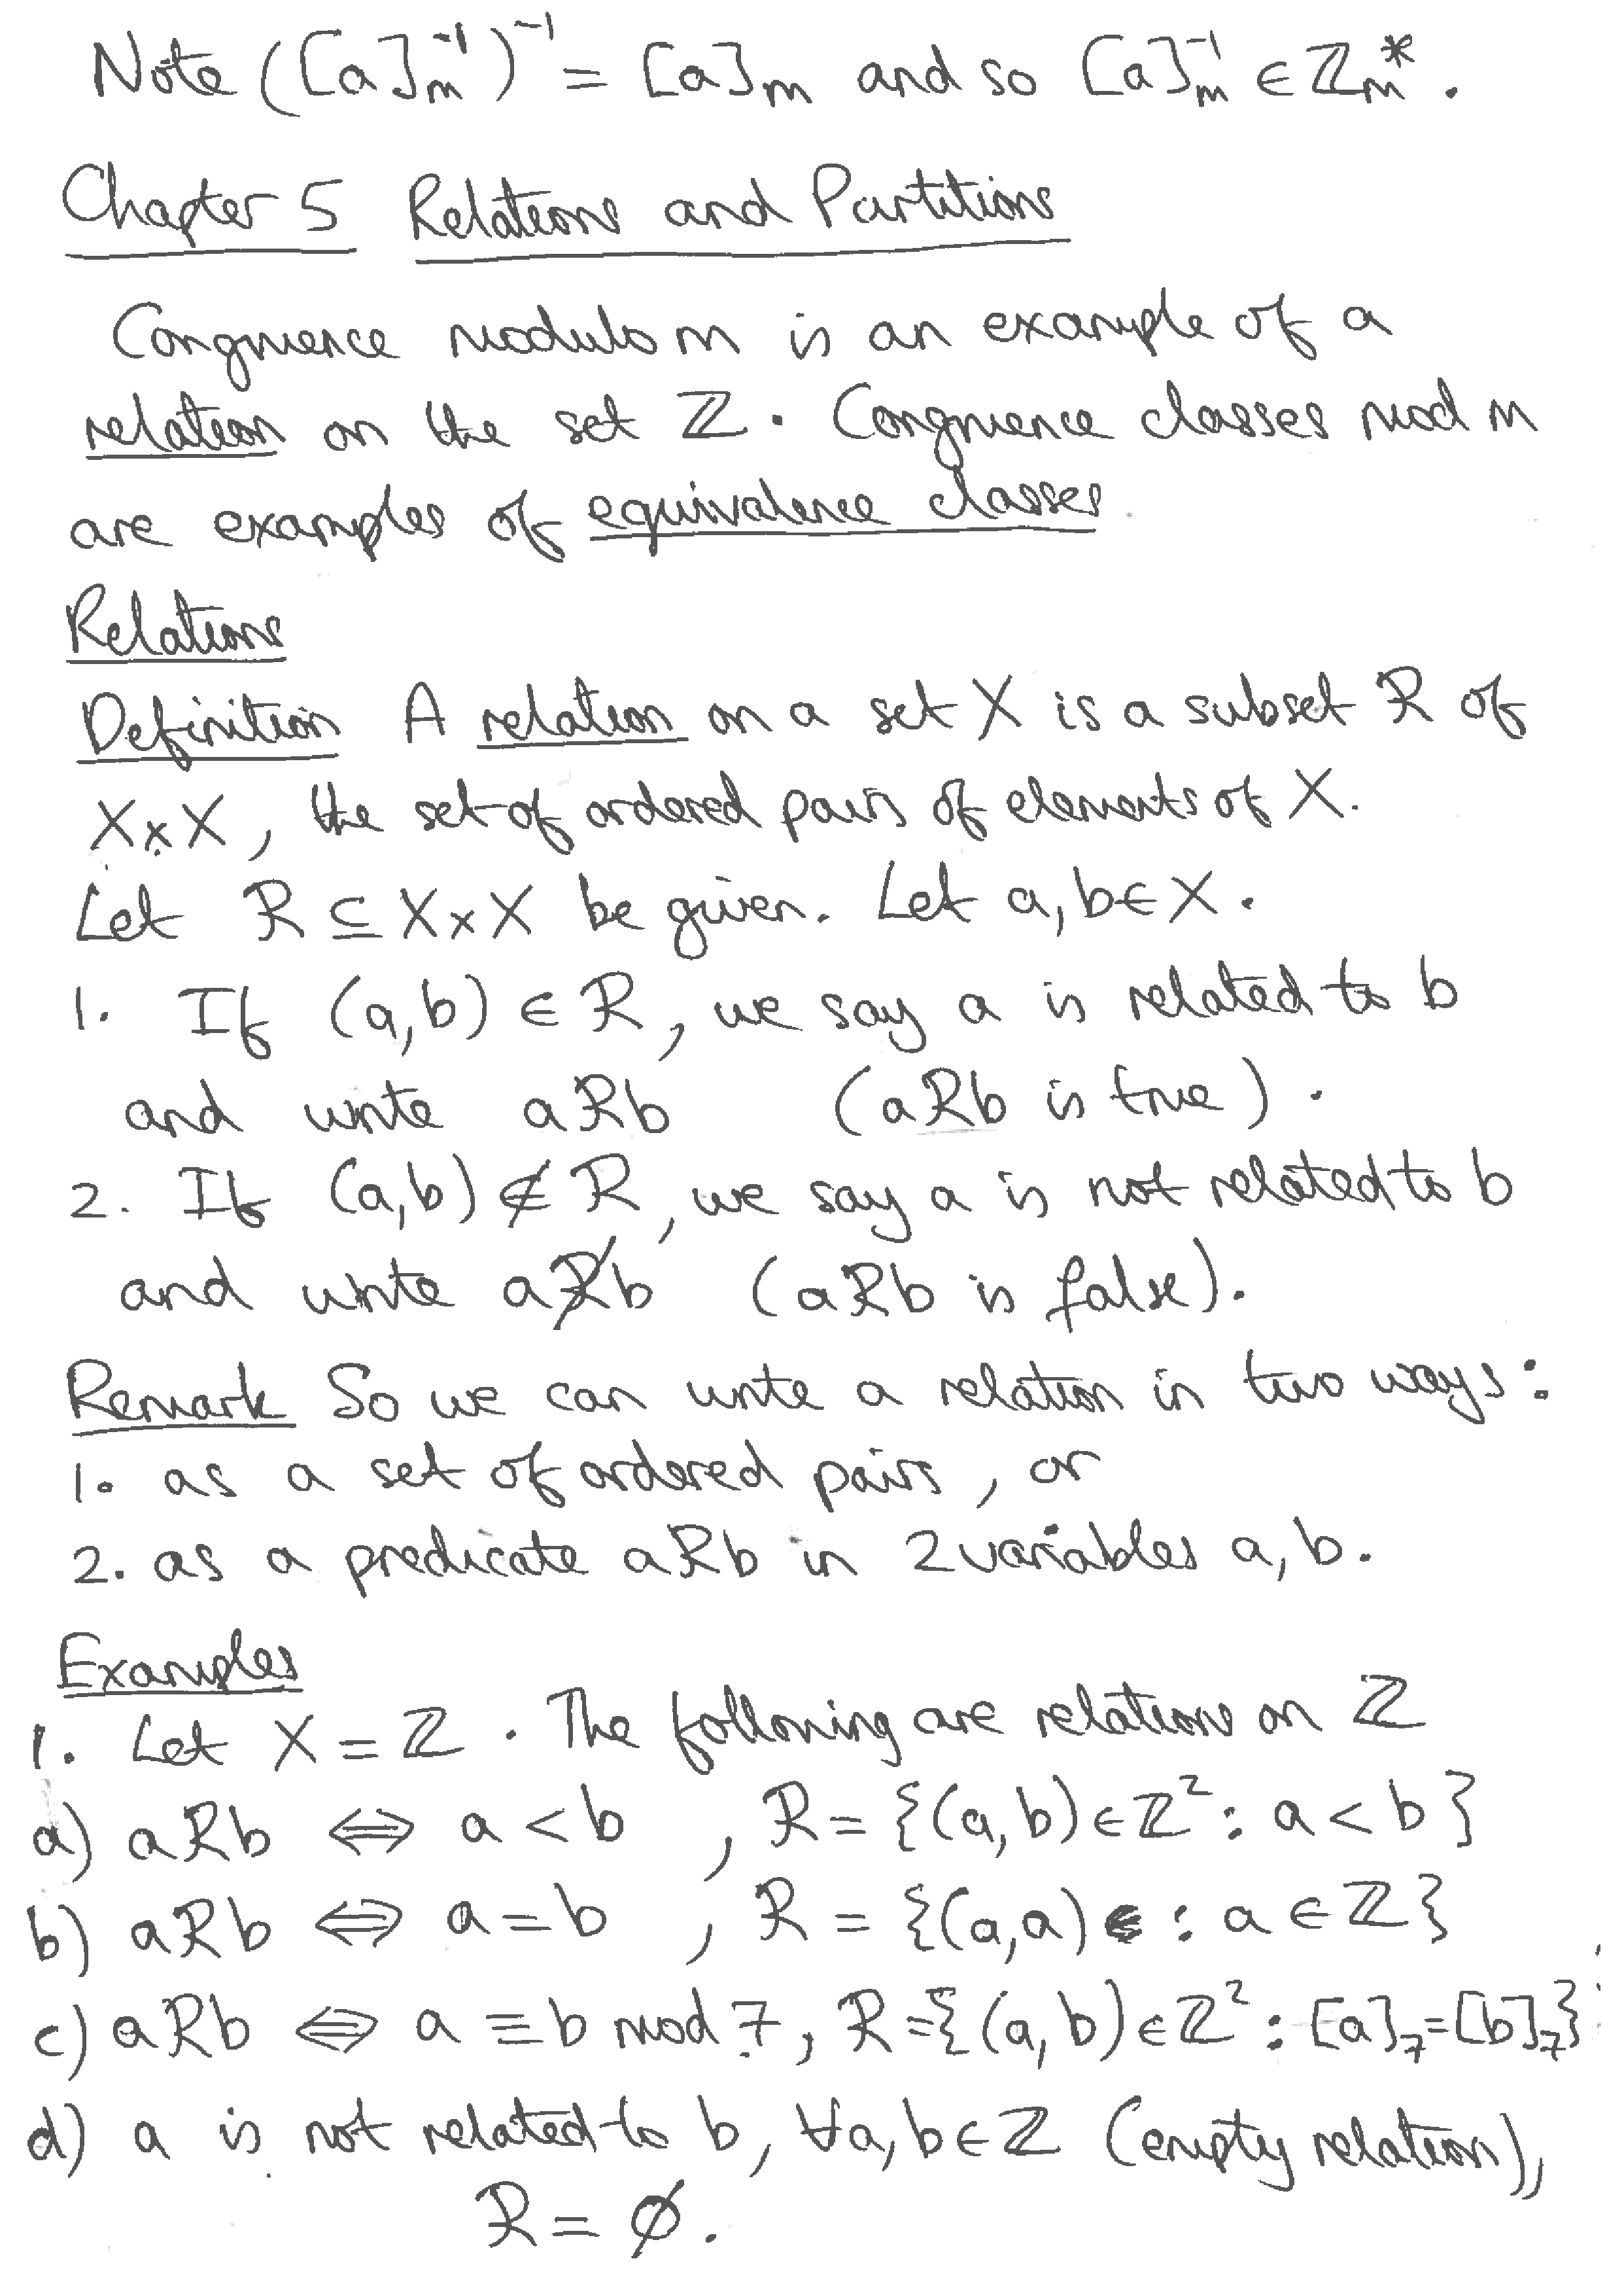 Note ([a]ₘ⁻¹)⁻¹ = [a]ₘ and so [a]ₘ⁻¹ ∈ ℤₘ*.
Chapter 5 Relations and Partitions
Congruence modulo m is an example of a
relation on the set ℤ. Congruence classes mod m
are examples of equivalence classes
Relations
Definition A relation on a set X is a subset R of
X×X, the set of ordered pairs of elements of X.
Let R ⊆ X×X be given. Let a, b ∈ X.
1. If (a,b) ∈ R, we say a is related to b
and write aRb (aRb is true).
2. If (a,b) ∉ R, we say a is not related to b
and write aR̸b (aRb is false).
Remark So we can write a relation in two ways:
1. as a set of ordered pairs, or
2. as a predicate aRb in 2 variables a, b.
Examples
1. Let X = ℤ. The following are relations on ℤ
a) aRb ⇔ a < b, R = {(a,b) ∈ ℤ² : a < b}
b) aRb ⇔ a = b, R = {(a,a) : a ∈ ℤ}
c) aRb ⇔ a ≡ b mod 7, R = {(a,b) ∈ ℤ² : [a]₇ = [b]₇}
d) a is not related to b, ∀a, b ∈ ℤ (empty relation),
R = ∅.